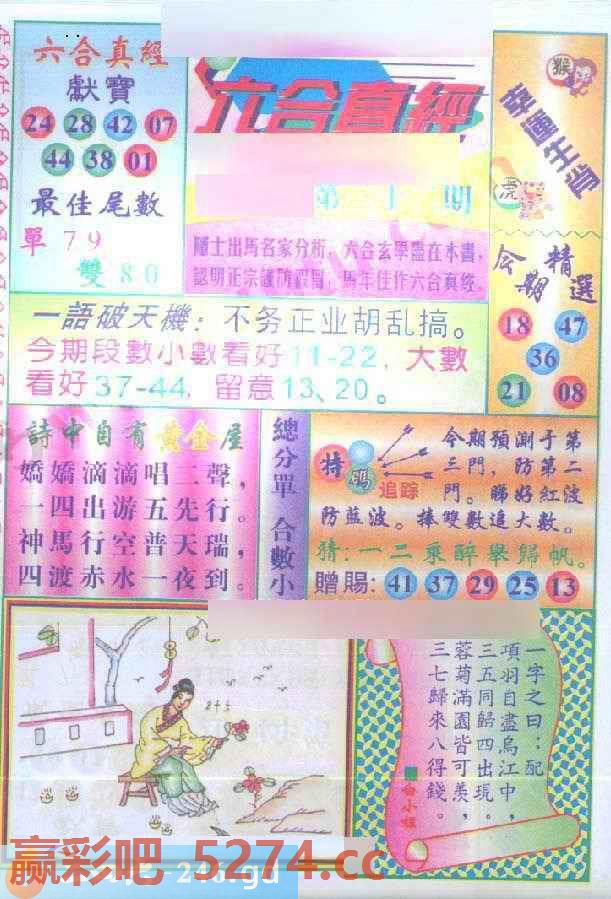 六合真經
獻寶
24 28 42 07
44 38 01
最佳尾數
單79
雙80
六合真經
第 期
猴
虎
幸運生肖
隱士出馬名家分析，六合玄學盡在本書，
馬年佳作六合真經。
今期精選
18 47
36
21 08
一語破天機：不务正业胡乱搞。
今期段數小數看好11-22，大數
看好37-44，留意13、20。
詩中自有黄金屋
嬌嬌滴滴唱二聲，
一四出游五先行。
神馬行空普天瑞，
四渡赤水一夜到。
總分單 合數小
特碼
追踪
今期預測于第
三門，防第二
門。睇好紅波
防蓝波。捧雙數追大數。
猜：一二乘醉舉歸帆。
贈賜：41 37 29 25 13
一字之曰：配
項羽自盡烏江中，
三五同歸四出現。
蓉菊滿園皆可羨，
三七歸來八得錢。
白小姐
赢彩吧 5274.cc